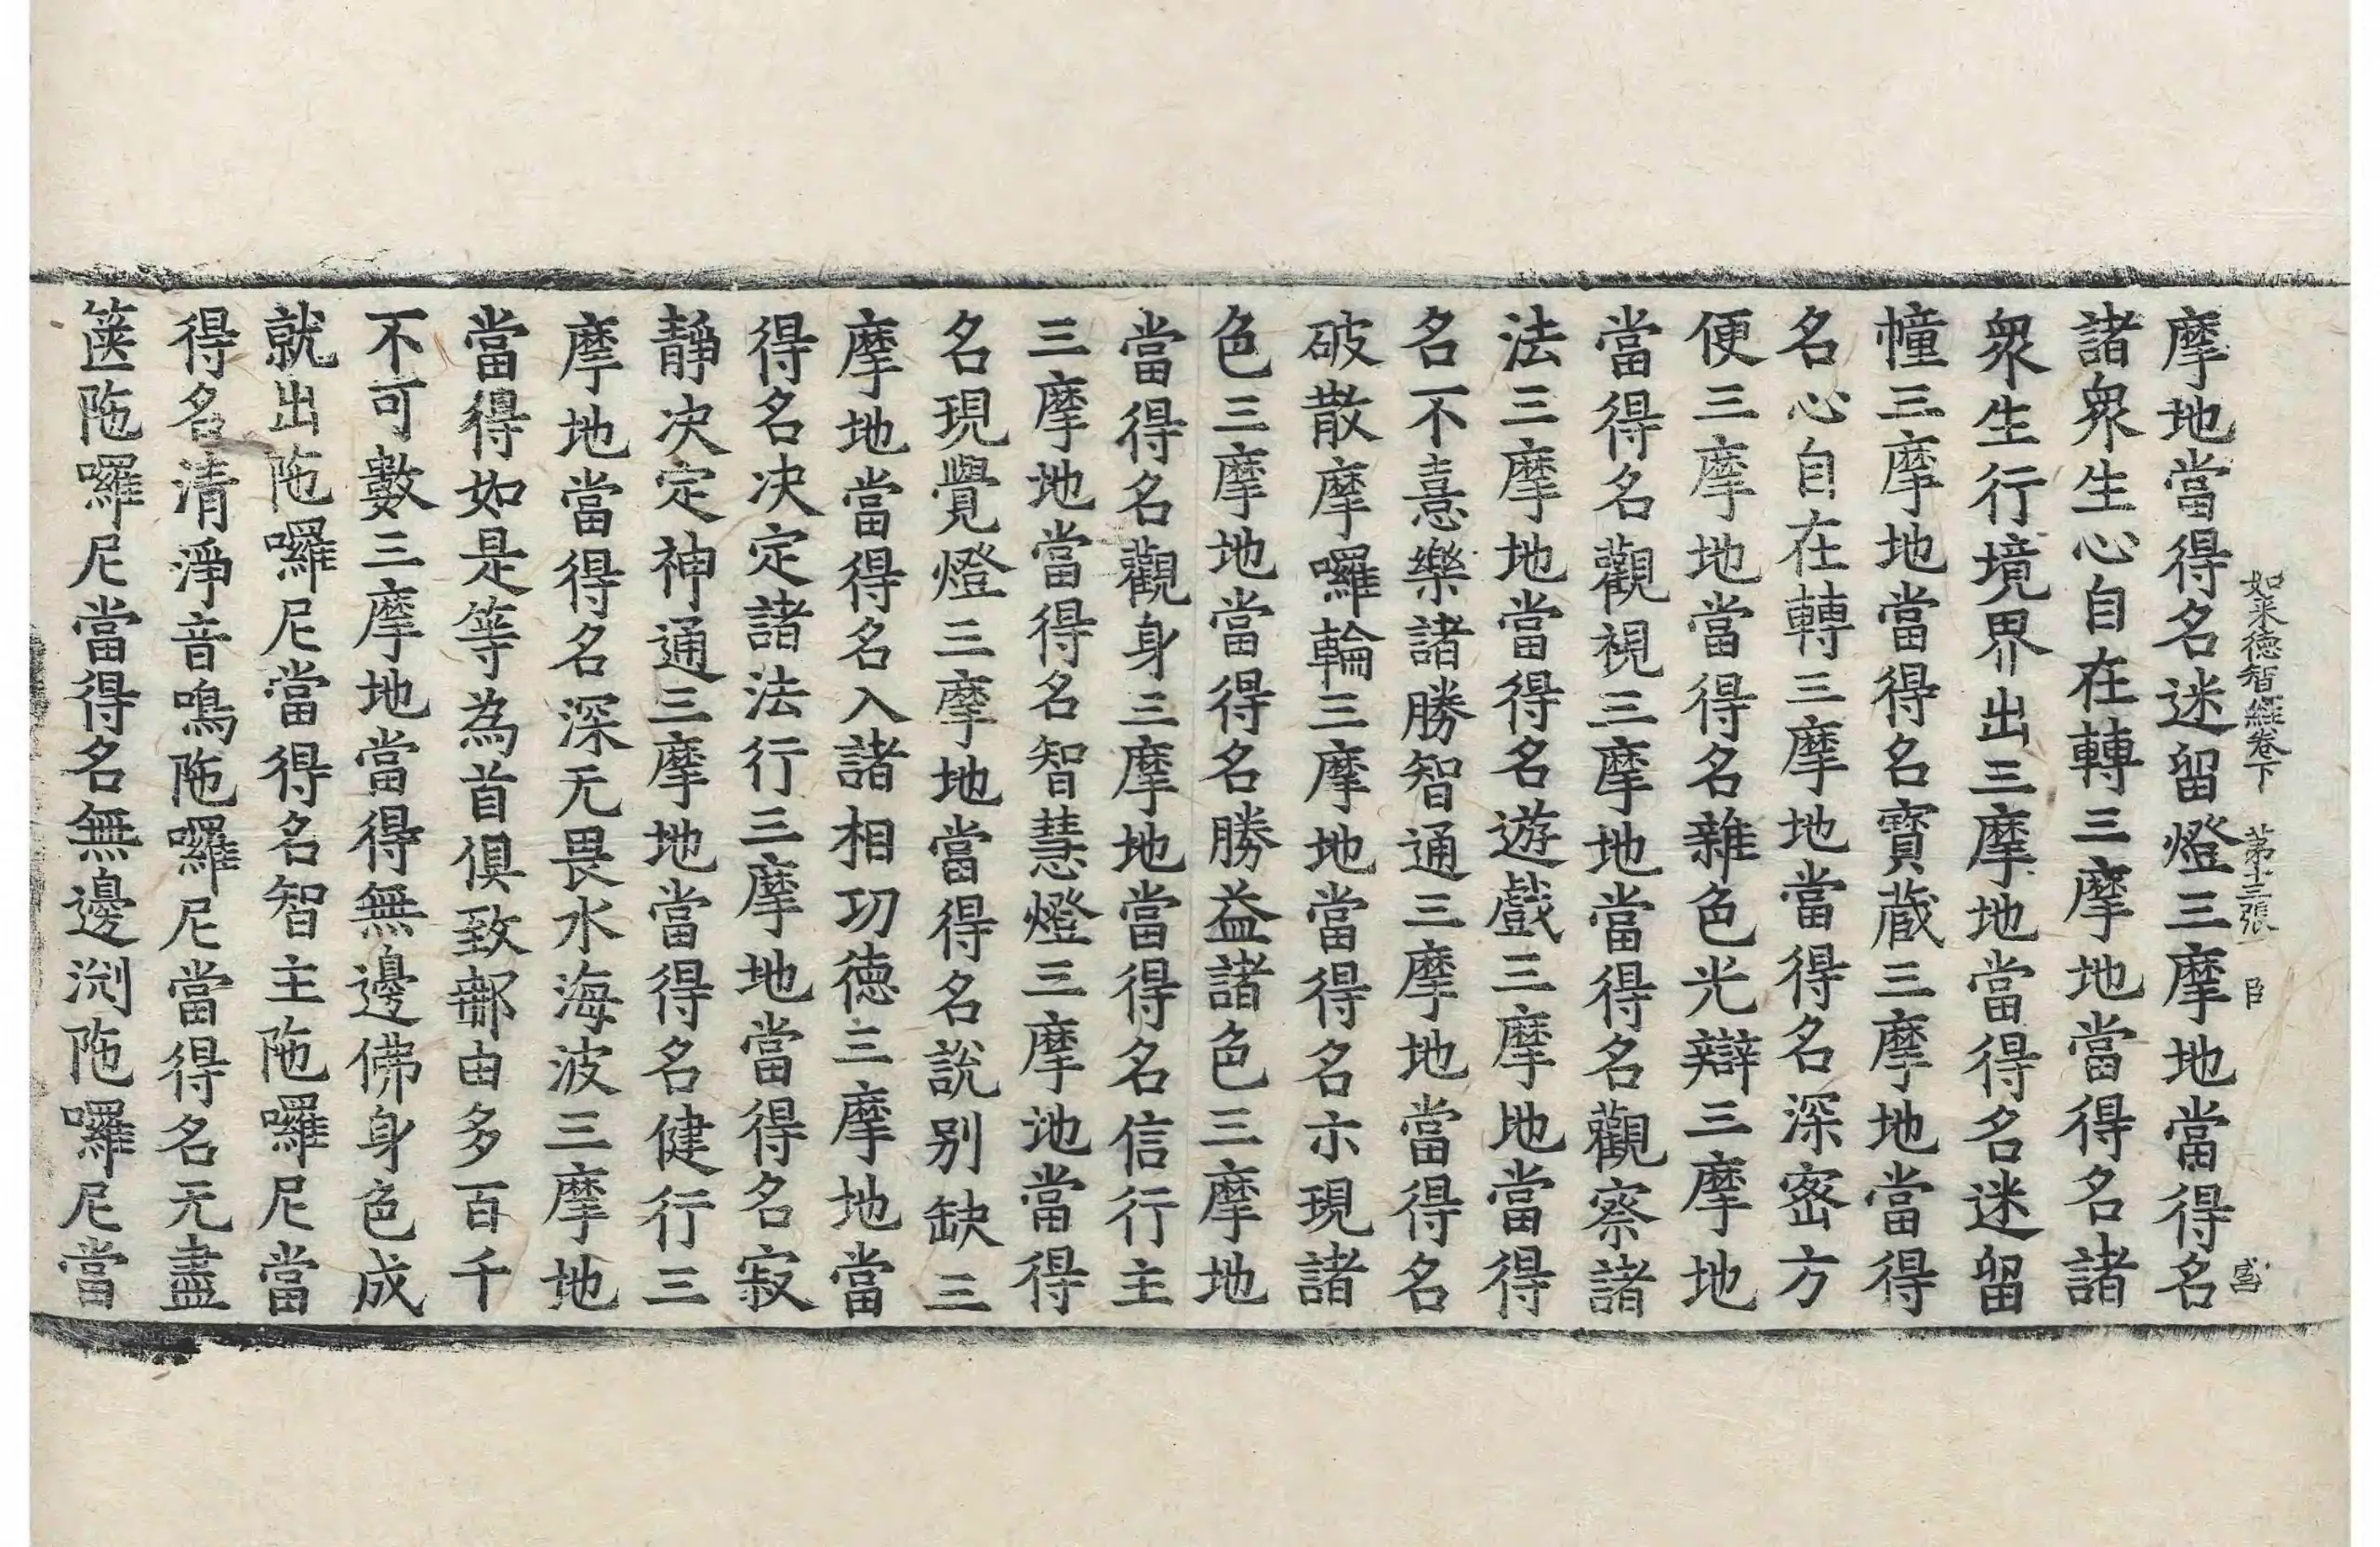 如来德智經卷下 第十三張 臣 㫪
摩地當得名迷留燈三摩地當得名
諸衆生心自在轉三摩地當得名諸
衆生行境界出三摩地當得名迷留
幢三摩地當得名寶蔵三摩地當得
名心自在轉三摩地當得名深密方
便三摩地當得名雜色光辯三摩地
當得名觀視三摩地當得名觀察諸
法三摩地當得名遊戲三摩地當得
名不憙樂諸勝智通三摩地當得名
破散摩囉輪三摩地當得名示現諸
色三摩地當得名勝益諸色三摩地
當得名觀身三摩地當得名信行主
三摩地當得名智慧燈三摩地當得
名現覺燈三摩地當得名說别缺三
摩地當得名入諸相功德三摩地當
得名决定諸法行三摩地當得名寂
靜决定神通三摩地當得名健行三
摩地當得名深无畏水海波三摩地
當得如是等為首俱致郍由多百千
不可數三摩地當得無邊佛身色成
就出陁囉尼當得名智主陁囉尼當
得名清淨音鳴陁囉尼當得名无盡
篋陁囉尼當得名無邊渕陁囉尼當